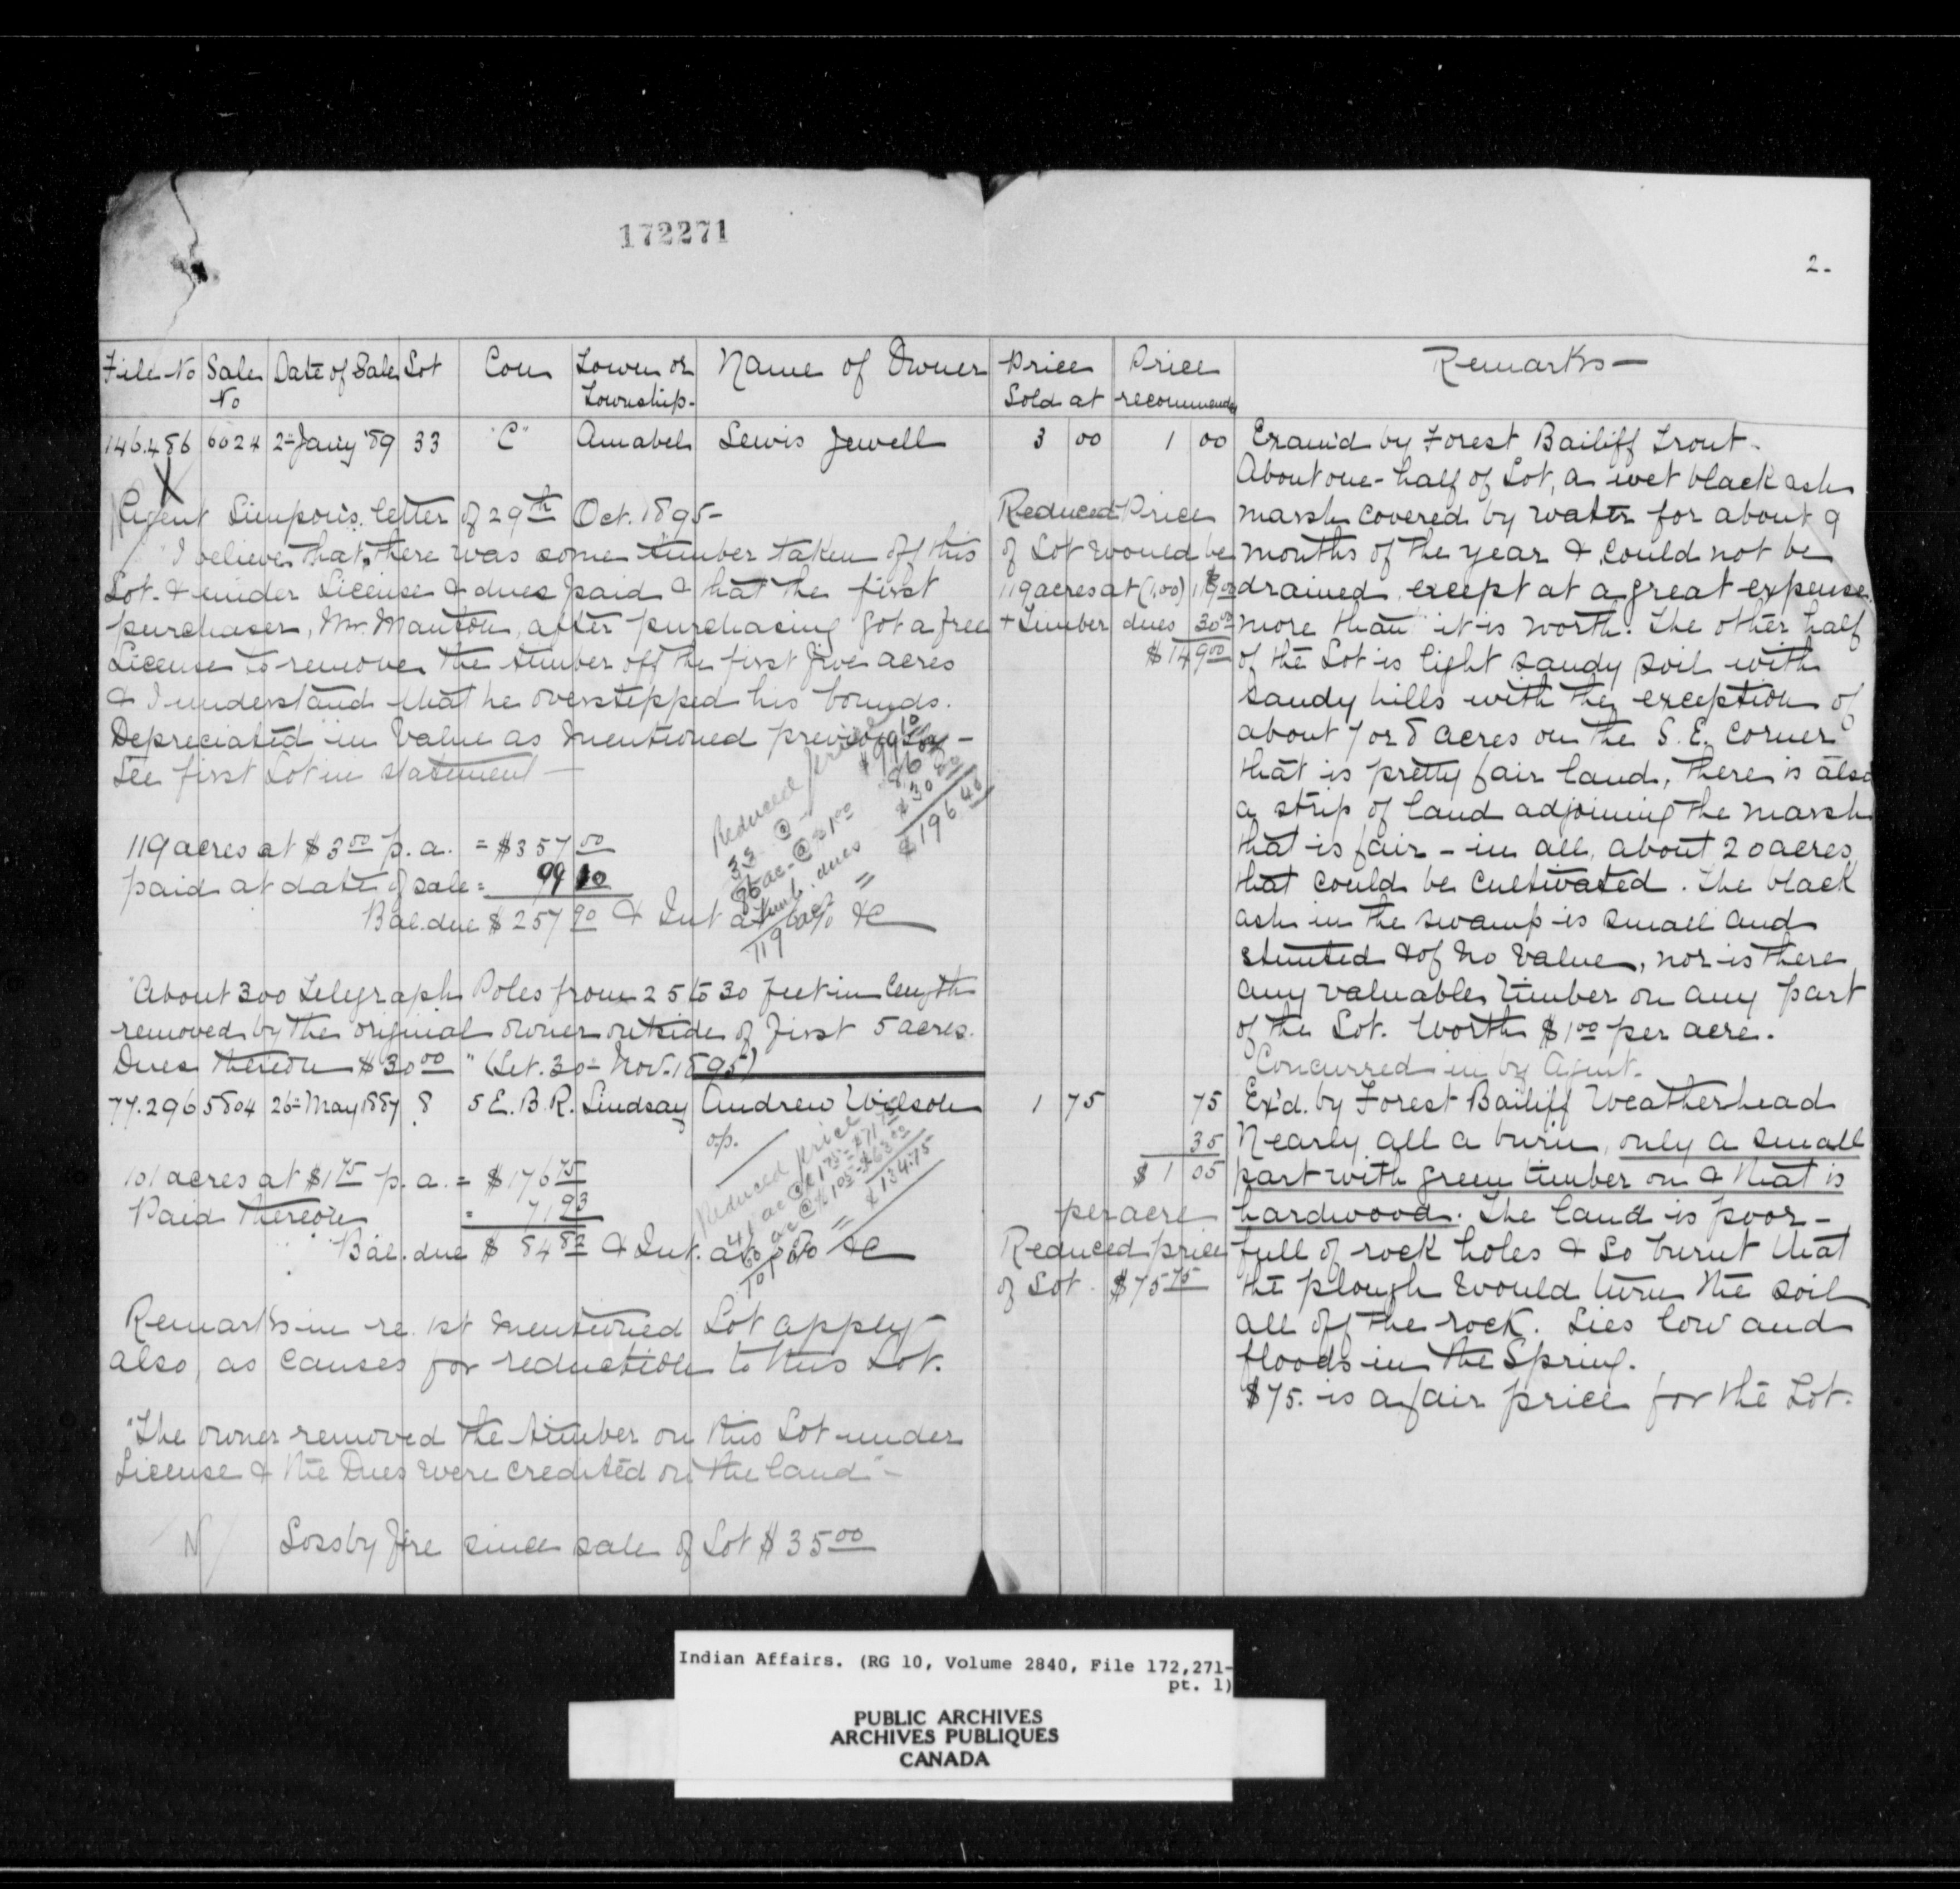 172271
2-
File No Sale No Date of Sale Lot Con Town or Township- Name of Owner Price Sold at Price recommended Remarks-
146.486 6024 2= Jany '89 33 "C" Amabel Lewis Jewell 3 00 1 00
X
Agent Simpson's letter of 29th Oct. 1895-
"I believe that there was some timber taken off this
Lot & under License & dues paid & that the first
purchaser, Mr. Manton, after purchasing got a free
License to remove the timber off the first five acres
& I understand that he overstepped his bounds.
Depreciated in value as mentioned previously -
See first Lot in statement -
119 acres at $3 00 p.a. = $357 00
paid at date of sale = 99 10
Bal. due $257 90 & Int at 6% &c
Reduced price
33 @ - $99 10
86 ac. @ $1 00 86
Timb. dues $30 00
119 acs = $196.40
"About 300 Telegraph Poles from 25 to 30 feet in length
removed by the original owner outside of first 5 acres.
Dues thereon $30 00 " (Let. 30= Nov. 1895)
Reduced Price
of Lot would be
119 acres at (1.00) 119 00
+ Timber dues 30 00
$149 00
Exam'd by Forest Bailiff Trout.
About one-half of Lot, a wet black ash
marsh covered by water for about 9
months of the year & could not be
drained except at a great expense
more than it is worth. The other half
of the Lot is light sandy soil with
sandy hills with the exception of
about 7 or 8 acres on the S.E. corner
that is pretty fair land, there is also
a strip of land adjoining the marsh
that is fair - in all, about 20 acres
that could be cultivated. The black
ash in the swamp is small and
stunted & of no value, nor is there
any valuable timber on any part
of the Lot. Worth $1 00 per acre.
Concurred in by Agent.
77.296 5804 26= May 1887 8 5 E.B.R. Lindsay Andrew Wilson 1 75 75
o.p.
101 acres at $1 75 p.a. = $176 75
Paid thereon = 71 93
Bal. due $ 84 82 & Int. at 6% &c
Reduced price
41 ac @ $1 75 = $71 75
60 ac @ $1 05 = $63 00
101 = $134.75
Remarks in re. 1st mentioned Lot apply
also, as causes for reduction to this Lot.
"The owner removed the timber on this Lot under
License & the Dues were credited on the land" -
N Loss by fire since sale of Lot $35 00
35
$1 05
per acre
Reduced price
of Lot. $75 75
Ex'd. by Forest Bailiff Weatherhead
Nearly all a burn, only a small
part with green timber on & that is
hardwood. The land is poor -
full of rock holes & so burnt that
the plough would turn the soil
all off the rock. Lies low and
floods in the Spring.
$75. is a fair price for the Lot.
Indian Affairs. (RG 10, Volume 2840, File 172,271-
pt. 1)
PUBLIC ARCHIVES
ARCHIVES PUBLIQUES
CANADA